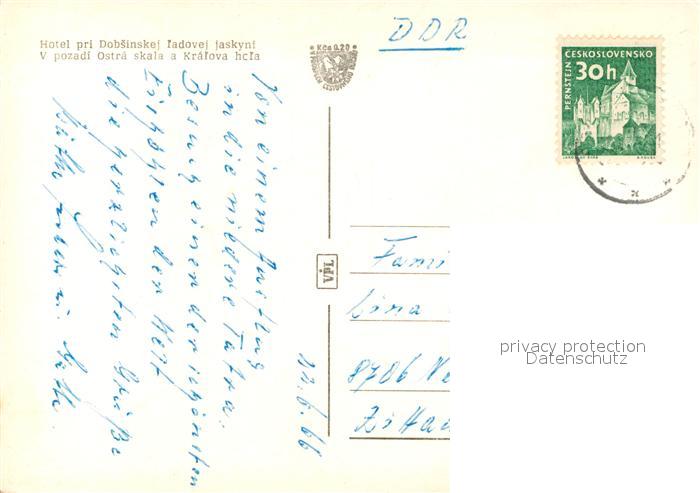 Hotel pri Dobšinskej ľadovej jaskyni
V pozadí Ostrá skala a Kráľova hoľa
Kčs 0,20
DDR
ČESKOSLOVENSKO
30h
PERNŠTEJN
Von einem Ausflug
in die niedere Tatra.
Besuch einer der schönsten
Eishöhlen der Welt
die herzlichsten Grüße
VPL
22.6.66
Fami
Lina
8706 Ne
Zittau
privacy protection
Datenschutz